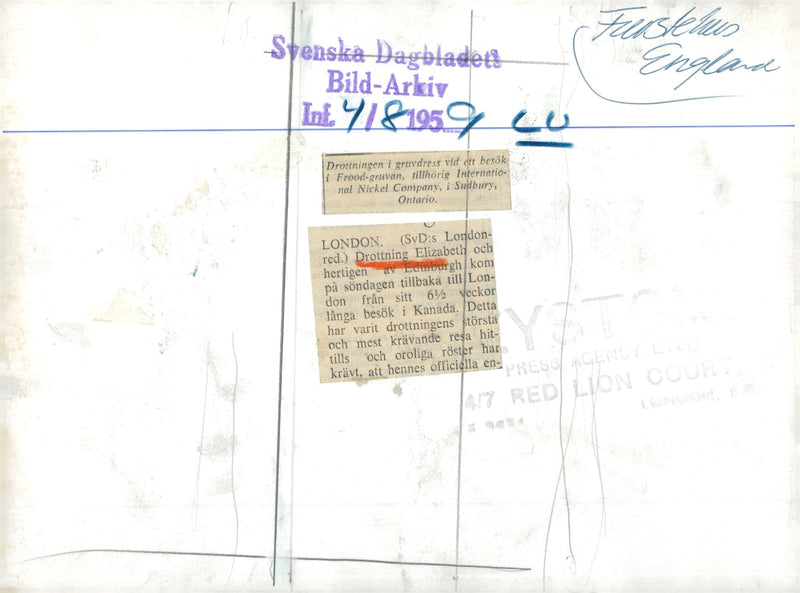 Furstehus
England
Svenska Dagbladets
Bild-Arkiv
Inf. 4/8 1959 LU
Drottningen i gruvdress vid ett besök
i Frood-gruvan, tillhörig Internatio-
nal Nickel Company, i Sudbury,
Ontario.
LONDON. (SvD:s London-
red.) Drottning Elizabeth och
hertigen av Edinburgh kom
på söndagen tillbaka till Lon-
don från sitt 6½ veckor
långa besök i Kanada. Detta
har varit drottningens största
och mest krävande resa hit-
tills och oroliga röster har
krävt, att hennes officiella en-
PRESS AGENCY LTD.
4/7 RED LION COURT,
LONDON, E.C.